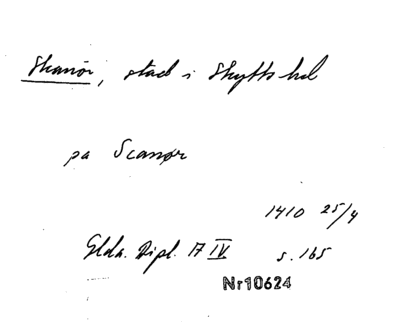 Skanör, stad i Skytts hd
pa Scanør
1410 25/4
Glda. Dipl. 17 IV s. 165
Nr10624